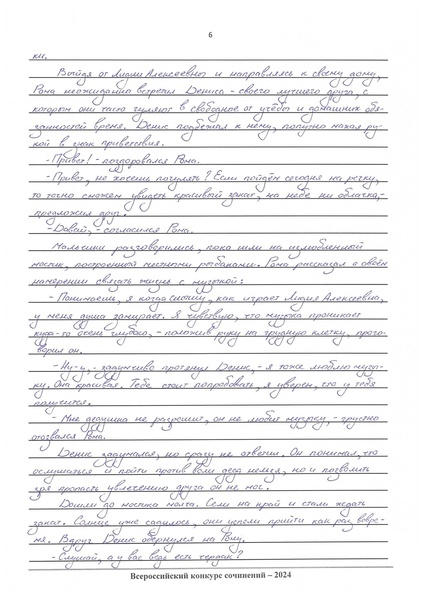 6
ки.
Выйдя от Лидии Алексеевны и направляясь к своему дому,
Рома неожиданно встретил Дениса - своего лучшего друга, с
которым они часто гуляют в свободное от учёбы и домашних обя-
занностей время. Денис подбежал к нему, попутно махая ру-
кой в знак приветствия.
- Привет! - поздоровался Рома.
- Привет, не хочешь погулять? Если пойдём сегодня на речку,
то точно сможем увидеть красивый закат, на небе ни облачка, -
предложил друг.
- Давай, - согласился Рома.
Мальчики разговорились, пока шли на излюбленный
мостик, построенный местными рыбаками. Рома рассказал о своём
намерении связать жизнь с музыкой:
- Понимаешь, я когда слышу, как играет Лидия Алексеевна,
у меня душа замирает. Я чувствую, что музыка проникает
куда-то очень глубоко, - положив руку на грудную клетку, прого-
ворил он.
- Ну-у, - задумчиво протянул Денис, - я тоже люблю музы-
ку. Она красивая. Тебе стоит попробовать, я уверен, что у тебя
получится.
- Мне дедушка не разрешит, он не любит музыку, - грустно
отозвался Рома.
Денис задумался, но сразу не ответил. Он понимал, что
ослушаться и пойти против воли деда нельзя, но и позволить
зря пропасть увлечению друга он не мог.
Дошли до мостика молча. Сели на край и стали ждать
закат. Солнце уже садилось, они успели прийти как раз вовре-
мя. Вдруг Денис обернулся на Рому.
- Слушай, а у вас ведь есть чердак?
Всероссийский конкурс сочинений – 2024